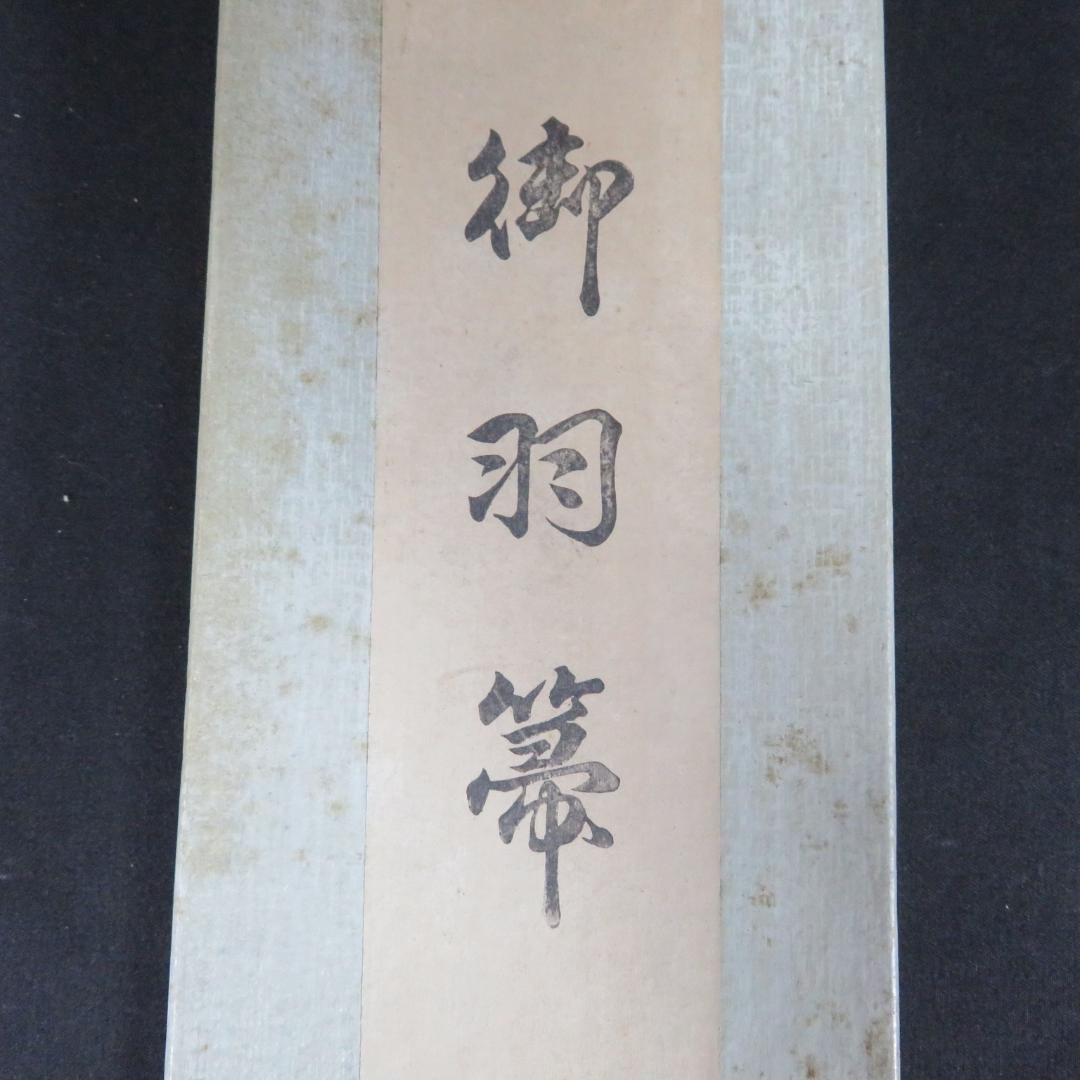 御羽箒